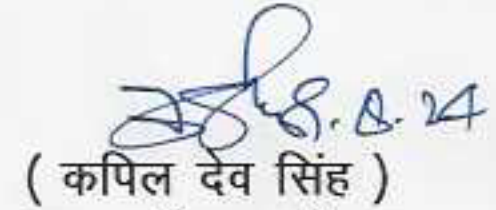 8.8.24
( कपिल देव सिंह )